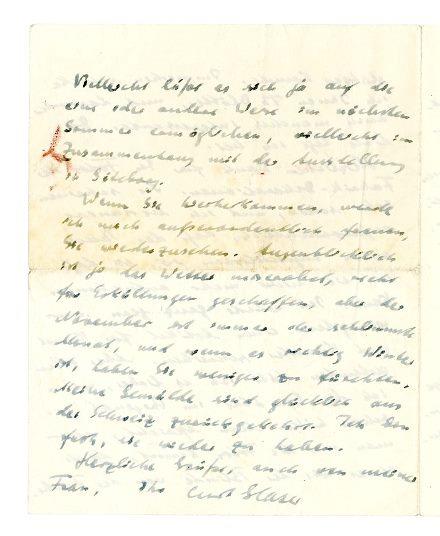 Vielleicht läßt es sich ja auf die
eine oder andere Weise im nächsten
Sommer ermöglichen, vielleicht im
Zusammenhang mit der Ausstellung
in Göteborg.
Wenn Sie herüberkommen, würde
ich mich außerordentlich freuen,
Sie wiederzusehen. Augenblicklich
ist ja das Wetter miserabel, recht
für Erkältungen geschaffen, aber der
November ist immer der schlimmste
Monat, und wenn es richtig Winter
ist, haben Sie weniger zu fürchten.
Meine Gemälde sind glücklich aus
der Schweiz zurückgekehrt. Ich bin
froh, sie wieder zu haben.
Herzliche Grüße, auch von meiner
Frau, Ihr Curt Glaser